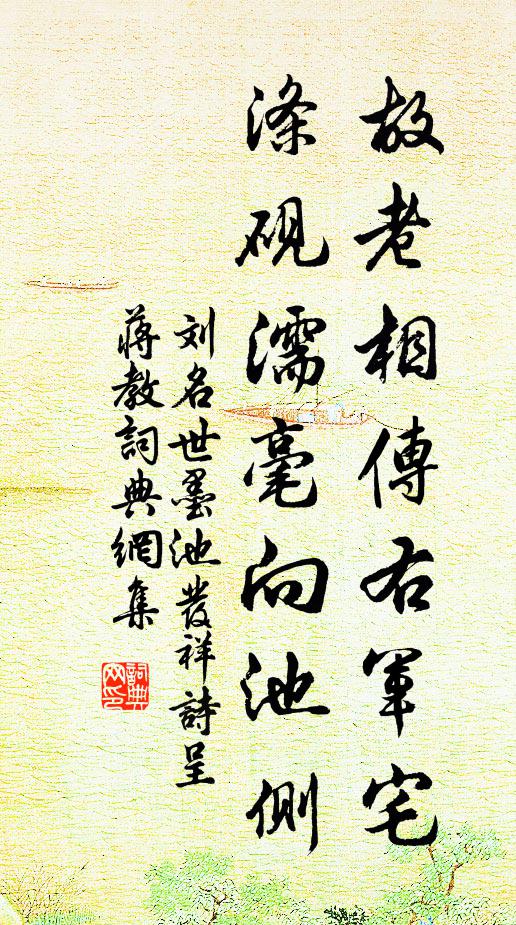 故老相傳右軍宅
滌硯濡毫向池側
刘名世墨池發祥詩呈
蔣教詞典網集
詞典
网印